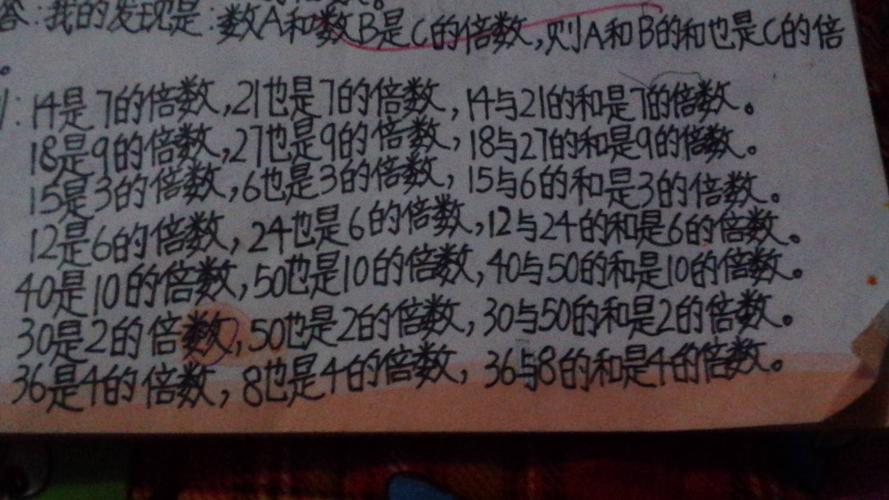 答:我的发现是:数A和数B是C的倍数,则A和B的和也是C的倍
。
:14是7的倍数,21也是7的倍数,14与21的和是7的倍数。
18是9的倍数,27也是9的倍数,18与27的和是9的倍数。
15是3的倍数,6也是3的倍数,15与6的和是3的倍数。
12是6的倍数,24也是6的倍数,12与24的和是6的倍数。
40是10的倍数,50也是10的倍数,40与50的和是10的倍数。
30是2的倍数,50也是2的倍数,30与50的和是2的倍数。
36是4的倍数,8也是4的倍数,36与8的和是4的倍数。